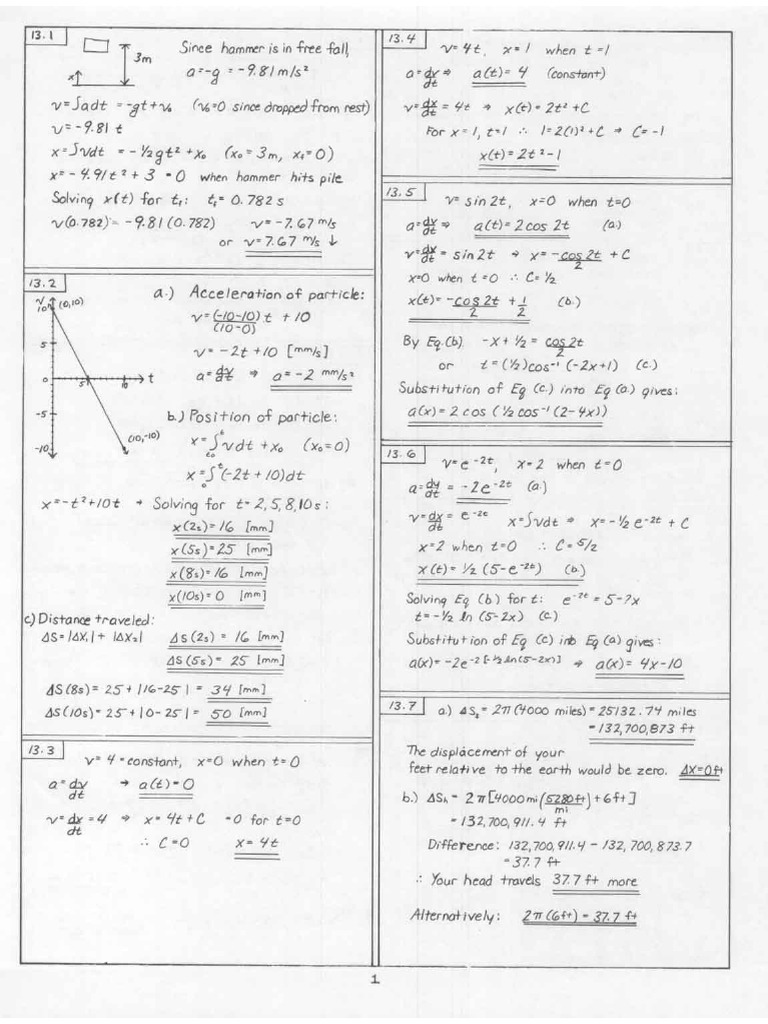 13.1
3m
x
Since hammer is in free fall,
a=-g = -9.81 m/s²
v=∫adt = -gt+v₀ (v₀=0 since dropped from rest)
v=-9.81 t
x=∫vdt = -½gt²+x₀ (x₀=3m, x₁=0)
x=-4.91t²+3=0 when hammer hits pile
Solving x(t) for t₁: t₁=0.782 s
v(0.782)=-9.81(0.782) v=-7.67 m/s
or v=7.67 m/s ↓
13.2
v
10
(0,10)
5
0
5
10
t
-5
-10
(10,-10)
a.) Acceleration of particle:
v=(-10-10)/(10-0) t + 10
v=-2t+10 [mm/s]
a=dv/dt ⇒ a=-2 mm/s²
b.) Position of particle:
x=∫vdt+x₀ (x₀=0)
x=∫₀ᵗ(-2t+10)dt
x=-t²+10t → Solving for t=2,5,8,10s:
x(2s)=16 [mm]
x(5s)=25 [mm]
x(8s)=16 [mm]
x(10s)=0 [mm]
c.) Distance traveled:
ΔS=|ΔX₁|+|ΔX₂| ΔS(2s)=16 [mm]
ΔS(5s)=25 [mm]
ΔS(8s)=25+|16-25|=34 [mm]
ΔS(10s)=25+|0-25|=50 [mm]
13.3
v=4=constant, x=0 when t=0
a=dv/dt → a(t)=0
v=dx/dt=4 ⇒ x=4t+C =0 for t=0
∴ C=0 x=4t
13.4
v=4t, x=1 when t=1
a=dx/dt ⇒ a(t)=4 (constant)
v=dx/dt=4t ⇒ x(t)=2t²+C
For x=1, t=1 ∴ 1=2(1)²+C ⇒ C=-1
x(t)=2t²-1
13.5
v=sin2t, x=0 when t=0
a=dx/dt ⇒ a(t)=2cos 2t (a.)
v=dx/dt=sin2t ⇒ x=-cos2t/2+C
x=0 when t=0 ∴ C=½
x(t)=-cos2t/2+1/2 (b.)
By Eq.(b.) -x+½=cos2t/2
or t=(½)cos⁻¹(-2x+1) (c.)
Substitution of Eq (c.) into Eq (a.) gives:
a(x)=2cos(½cos⁻¹(2-4x))
13.6
v=e⁻²ᵗ, x=2 when t=0
a=dv/dt=-2e⁻²ᵗ (a.)
v=dx/dt=e⁻²ᵗ x=∫vdt ⇒ x=-½e⁻²ᵗ+C
x=2 when t=0 ∴ C=5/2
x(t)=½(5-e⁻²ᵗ) (b.)
Solving Eq (b) for t: e⁻²ᵗ=5-?x
t=-½ ln(5-2x) (c.)
Substitution of Eq (c) into Eq (a) gives:
a(x)=-2e^-2[-½ln(5-2x)] ⇒ a(x)=4x-10
13.7
a.) ΔSₐ=2π(4000 miles)=25132.74 miles
=132,700,873 ft
The displacement of your
feet relative to the earth would be zero. ΔX=0ft
b.) ΔSₕ=2π[4000mi(5280ft/mi)+6ft]
=132,700,911.4 ft
Difference: 132,700,911.4-132,700,873.7
=37.7 ft
∴ Your head travels 37.7 ft more
Alternatively: 2π(6ft)=37.7 ft
1